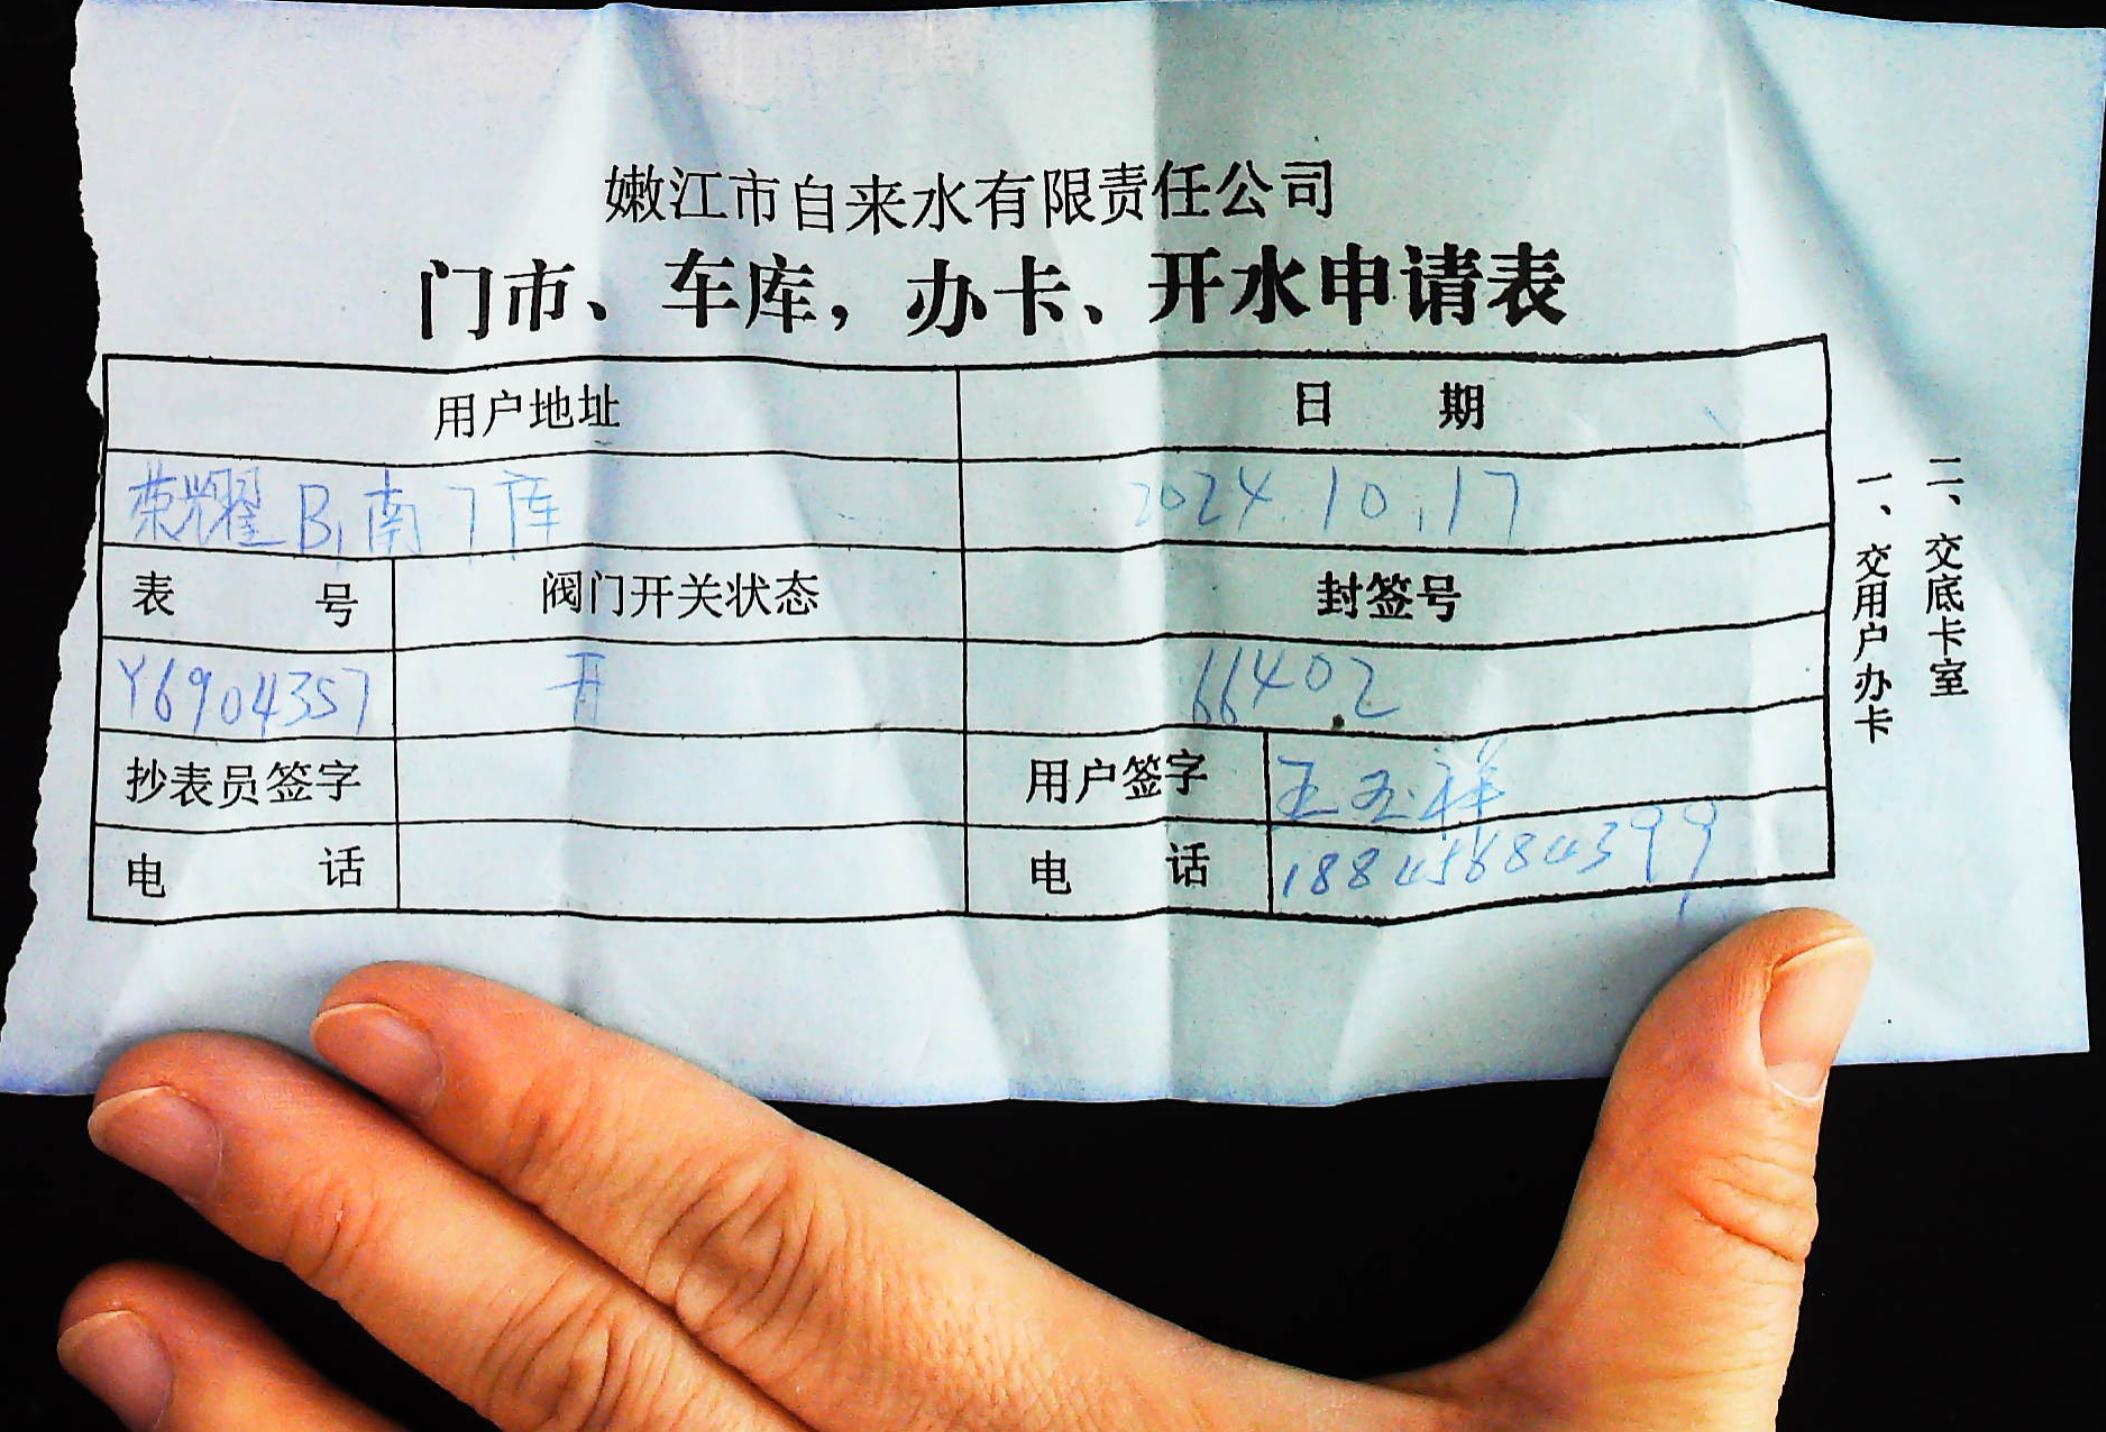 嫩江市自来水有限责任公司
门市、车库，办卡、开水申请表
用户地址 日 期
荣耀B1南7库 2024.10.17
表 号 阀门开关状态 封签号
Y6904357 开 66402
抄表员签字 用户签字 王玉祥
电 话 电 话 18845684399
二、交底卡室
一、交用户办卡